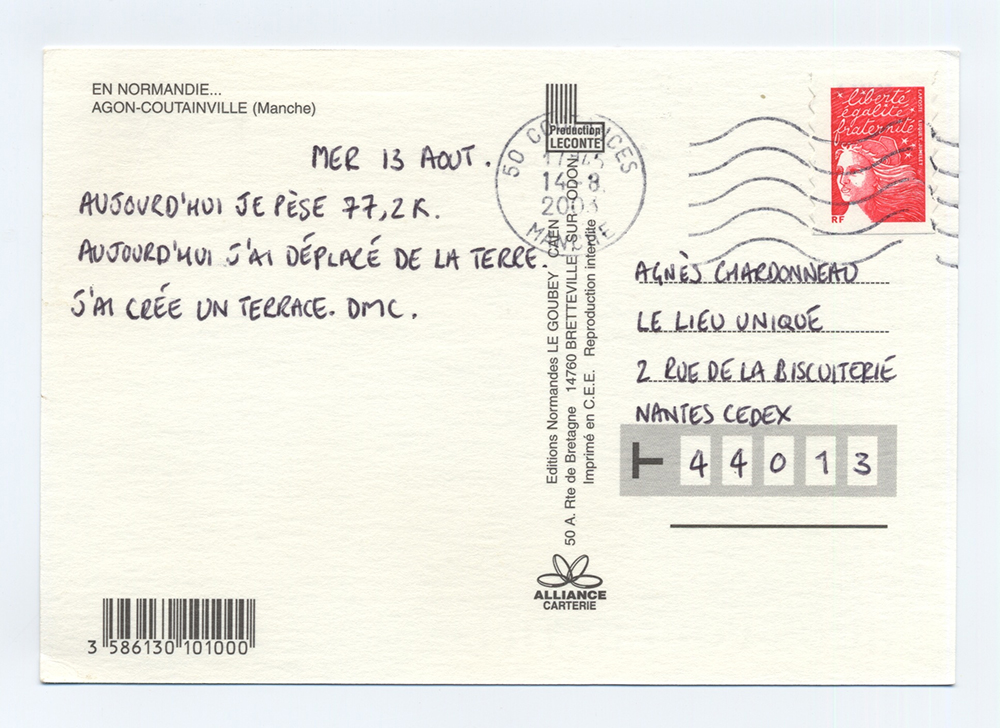 EN NORMANDIE...
AGON-COUTAINVILLE (Manche)
MER 13 AOUT.
AUJOURD'HUI JE PÈSE 77,2K.
AUJOURD'HUI J'AI DÉPLACÉ DE LA TERRE.
J'AI CRÉE UN TERRACE. DMC.
3 586130 101000
Production
LECONTE
50 COUTANCES
14-8
2003
MANCHE
Editions Normandes LE GOUBEY CAEN
50 A. Rte de Bretagne 14760 BRETTEVILLE-SUR-ODON
Imprimé en C.E.E. Reproduction interdite
ALLIANCE
CARTERIE
liberté
égalité
fraternité
RF
AGNÈS CHARDONNEAU
LE LIEU UNIQUE
2 RUE DE LA BISCUITERIE
NANTES CEDEX
44013